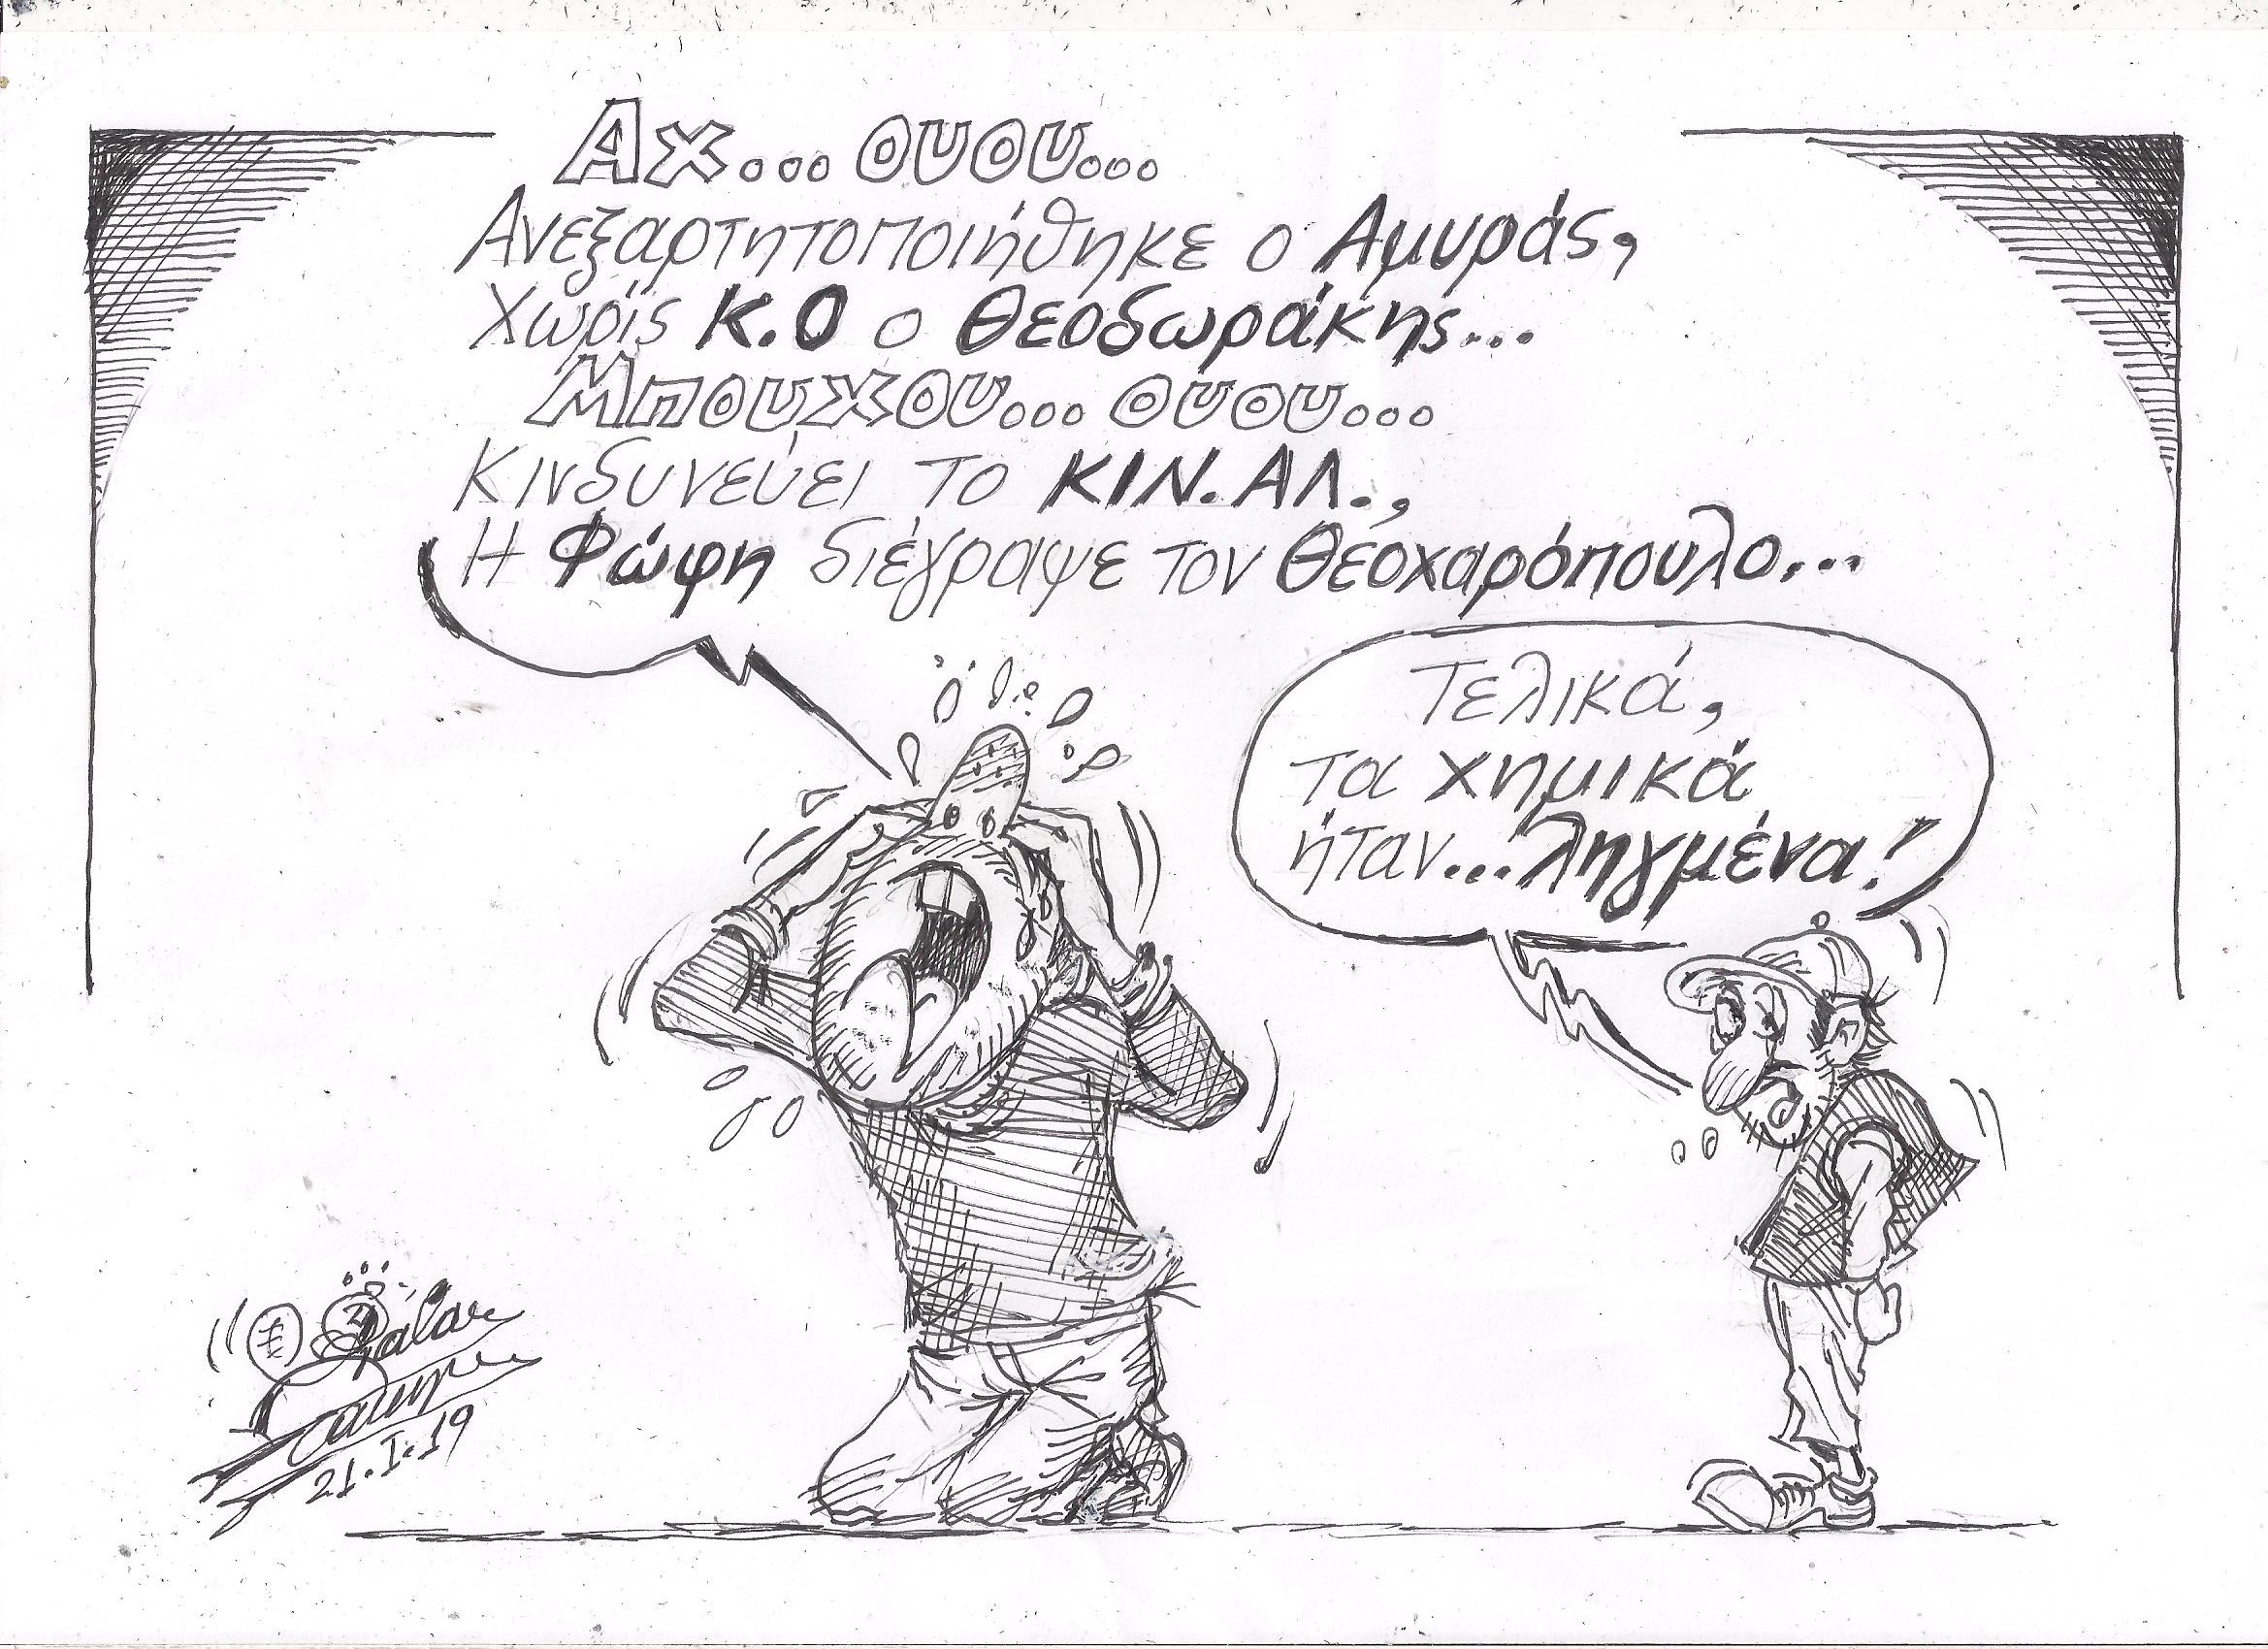 Αχ... ουου...
Ανεξαρτητοποιήθηκε ο Αμυράς,
Χωρίς Κ.Ο ο Θεοδωράκης...
Μπουχου... ουου...
Κινδυνεύει το ΚΙΝ.ΑΛ.,
Η Φώφη διέγραψε τον Θεοχαρόπουλο...
Τελικά,
τα χημικά
ήταν...ληγμένα!
21.I.19